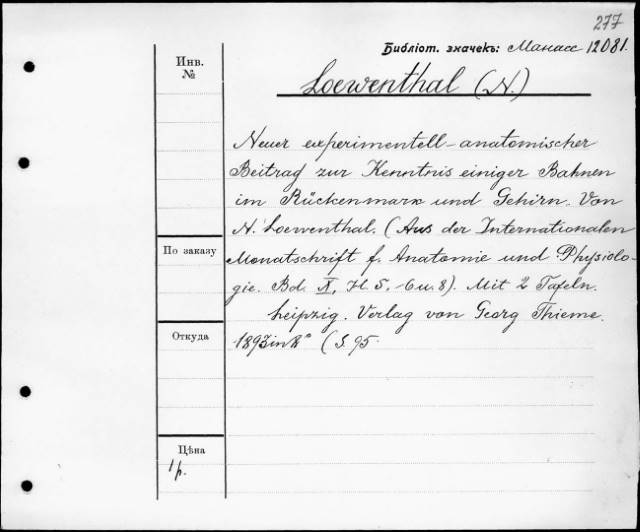 277
Библіот. значекъ: Манасс 12081.
Инв.
№
Loewenthal (N.)
Neuer experimentell-anatomischer
Beitrag zur Kenntnis einiger Bahnen
im Rückenmark und Gehirn. Von
N. Loewenthal. (Aus der Internationalen
По заказу
Monatschrift f. Anatomie und Physiolo-
gie. Bd. X, H. 5, 6 u. 8). Mit 2 Tafeln.
Leipzig. Verlag von Georg Thieme.
Откуда
1893 in 8° (S. 95
Цѣна
1 р.